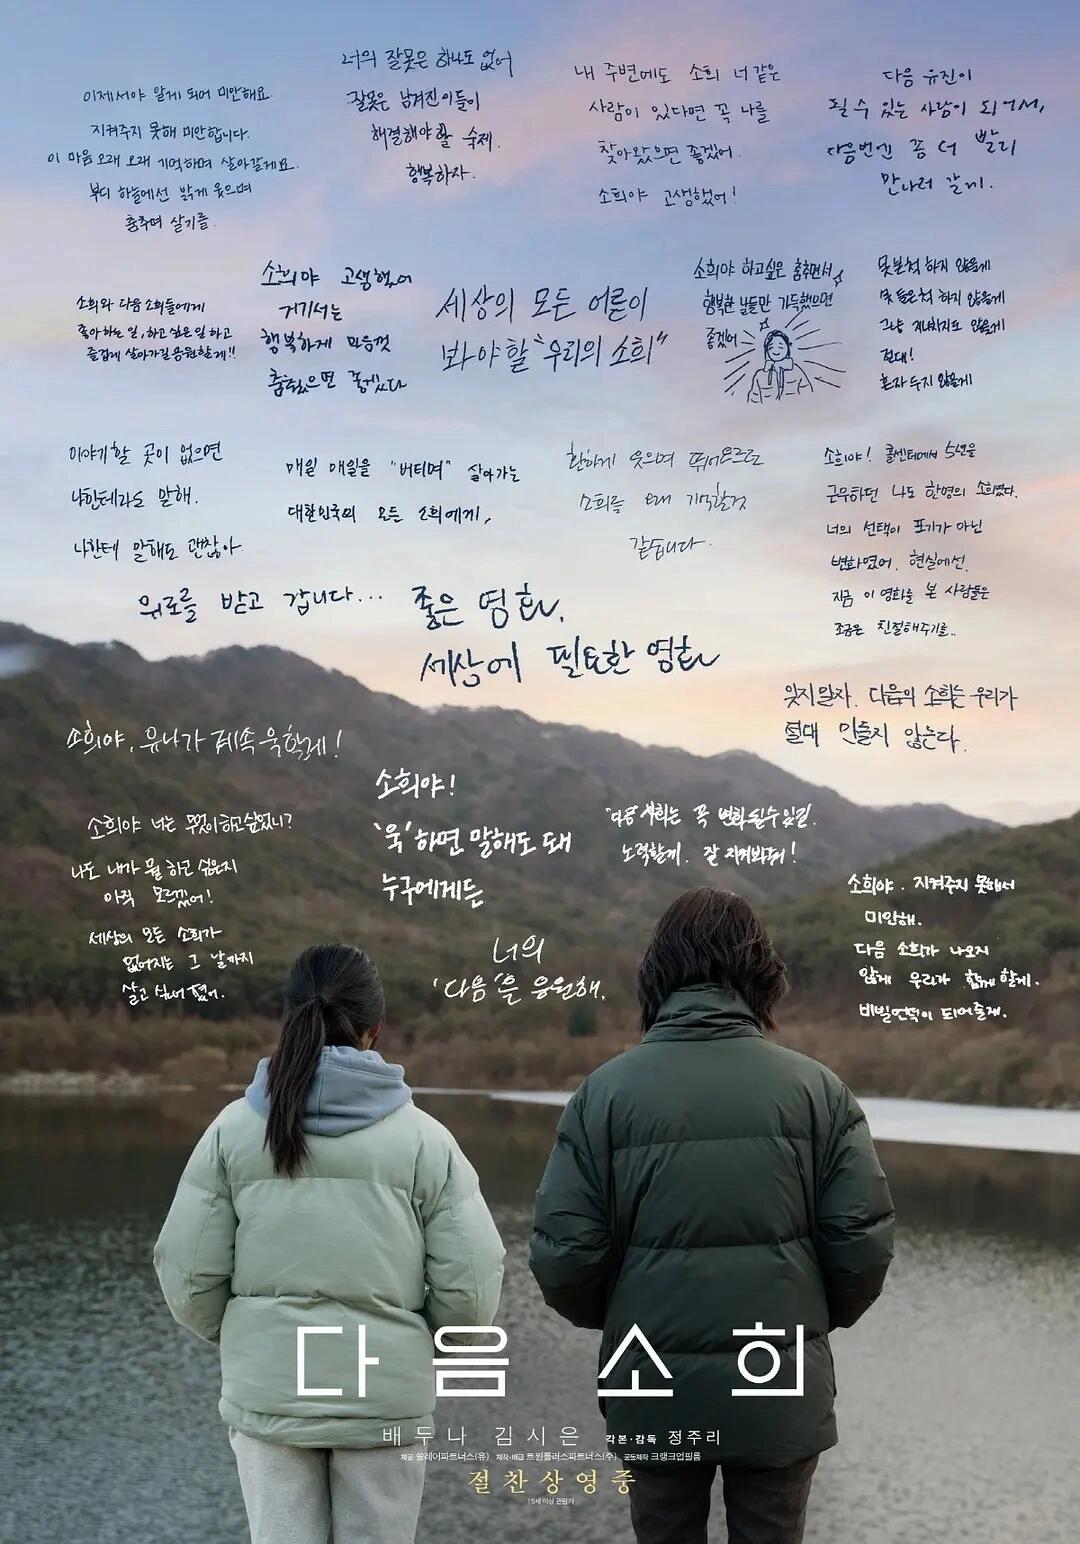 이제서야 알게 되어 미안해요.
지켜주지 못해 미안합니다.
이 마음 오래 오래 기억하며 살아갈게요.
부디 하늘에선 밝게 웃으며
춤추며 살기를.
너의 잘못은 하나도 없어
잘못은 남겨진 이들이
해결해야 할 숙제.
행복하자.
내 주변에도 소희 너 같은
사람이 있다면 꼭 나를
찾아왔으면 좋겠어.
소희야 고생했어!
다음 유진이
될 수 있는 사람이 되어서,
다음번엔 좀 더 빨리
만나러 갈게.
소희와 다음 소희들에게
좋아하는 일, 하고 싶은 일 하고
즐겁게 살아가길 응원할게!!
소희야 고생했어
거기서는
행복하게 마음껏
춤췄으면 좋겠다
세상의 모든 어른이
봐야 할 "우리의 소희"
소희야 하고싶은 춤추면서
행복한 날들만 가득했으면
좋겠어
못본척 하지 않을게
못 들은척 하지 않을게
그냥 지나치지도 않을게
절대!
혼자 두지 않을게
이야기할 곳이 없으면
나한테라도 말해.
나한테 말해도 괜찮아
매일 매일을 "버티며" 살아가는
대한민국의 모든 소희에게,
환하게 웃으며 뛰어오르던
소희를 오래 기억할것
같습니다.
소희야! 콜센터에서 5년을
근무하던 나도 한명의 소희였다.
너의 선택이 포기가 아닌
변화였어. 현실에선.
지금 이 영화를 본 사람들은
조금은 친절해주기를..
위로를 받고 갑니다...
좋은 영화.
세상에 필요한 영화
잊지말자. 다음의 소희는 우리가
절대 만들지 않는다.
소희야, 유나가 계속 욱할게!
소희야!
'욱'하면 말해도 돼
누구에게든
"다음 소희는 꼭 변화될수 있길.
노력할께. 잘 지켜봐줘!
소희야 너는 무엇이 하고싶었니?
나도 내가 뭘 하고 싶은지
아직 모르겠어!
세상의 모든 소희가
없어지는 그 날까지
살고 싶어 졌어.
너의
'다음'을 응원해.
소희야. 지켜주지 못해서
미안해.
다음 소희가 나오지
않게 우리가 함께 할게.
비빌언덕이 되어줄게.
다음 소희
배두나 김시은 각본·감독 정주리
제공 쏠레어파트너스(유) 제작·배급 트윈플러스파트너스(주) 공동제작 크랭크업필름
절찬상영중
15세 이상 관람가